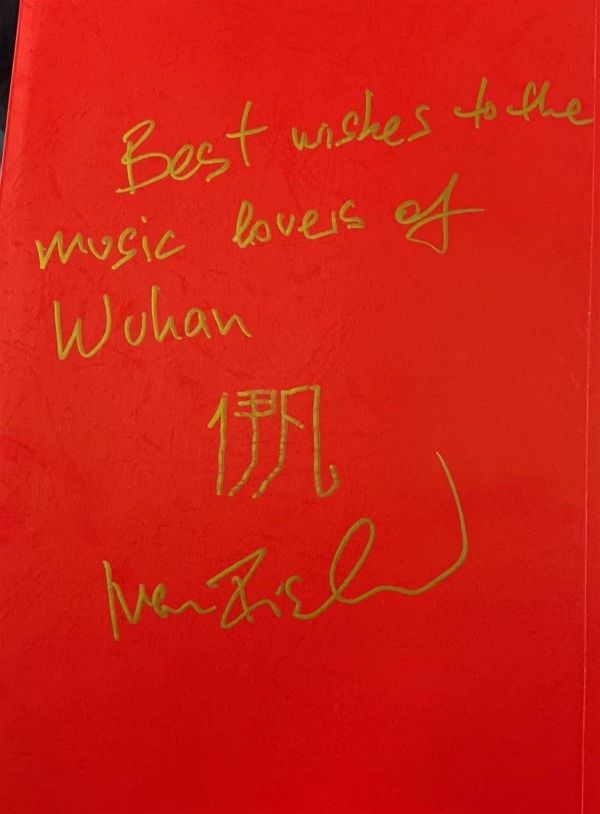 Best wishes to the
music lovers of
Wuhan
伊凡
Ivan